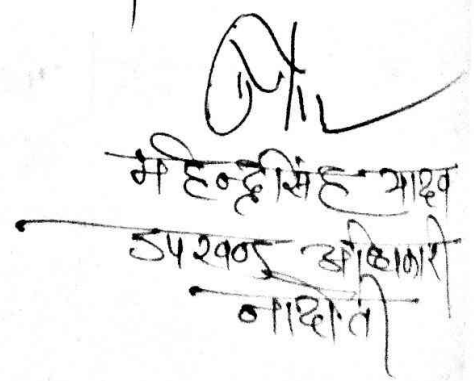 महेन्द्र सिंह यादव
उपखण्ड अधिकारी
नादौती